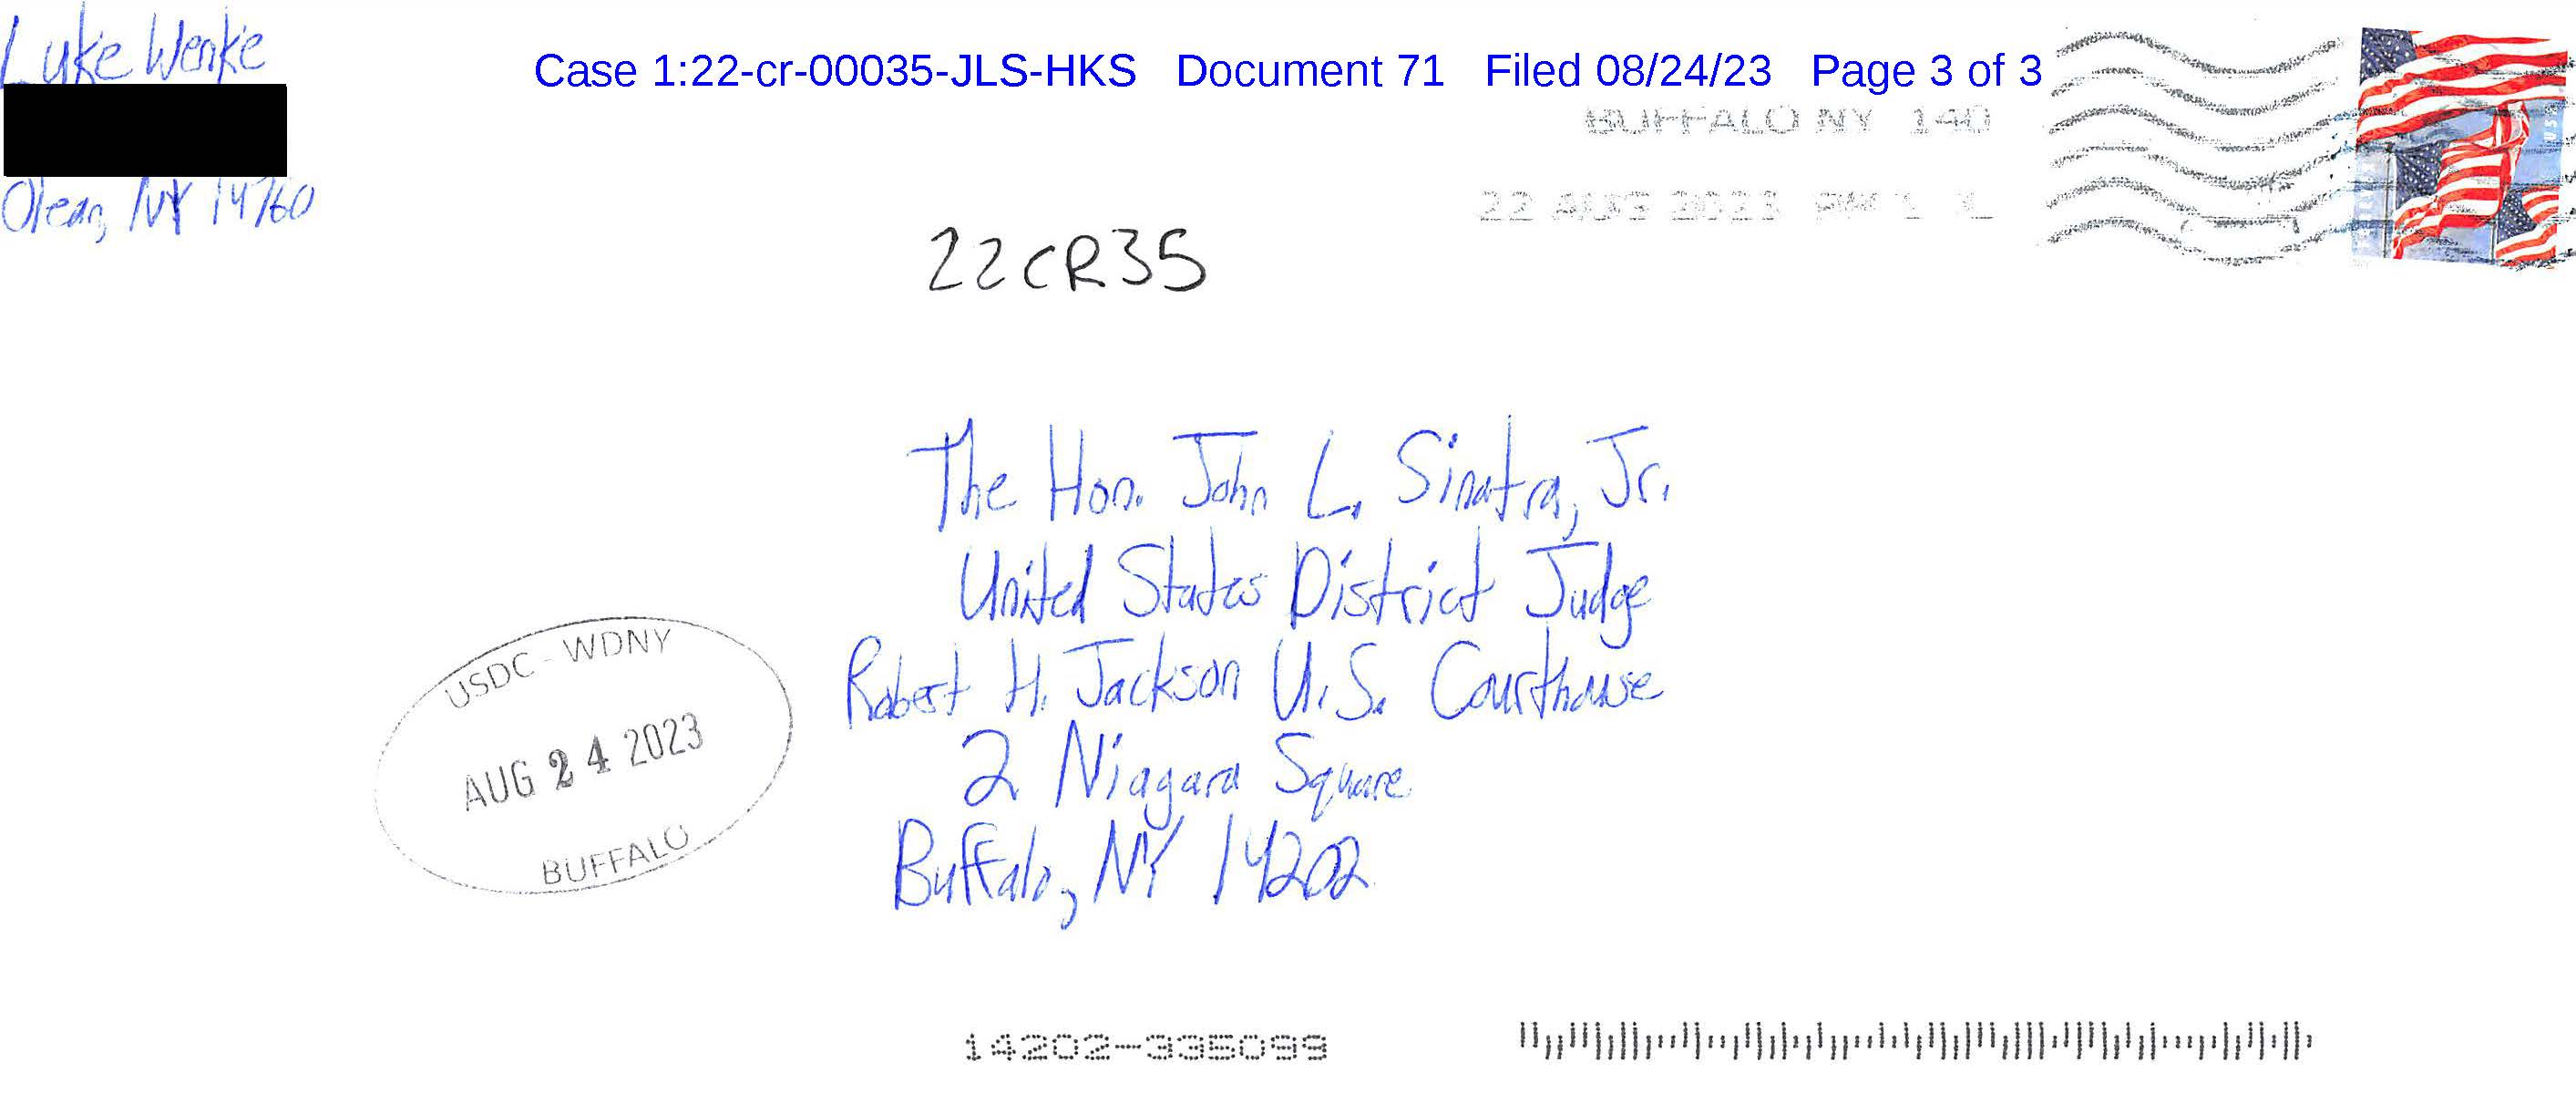 Luke Wenke
Case 1:22-cr-00035-JLS-HKS Document 71 Filed 08/24/23 Page 3 of 3
BUFFALO NY 140
Olean, NY 14760
22 AUG 2023 PM 1 L
22CR35
USA
The Hon. John L. Sinatra, Jr.
United States District Judge
Robert H. Jackson U.S. Courthouse
2 Niagara Square
Buffalo, NY 14202
USDC - WDNY
AUG 24 2023
BUFFALO
14202-335099